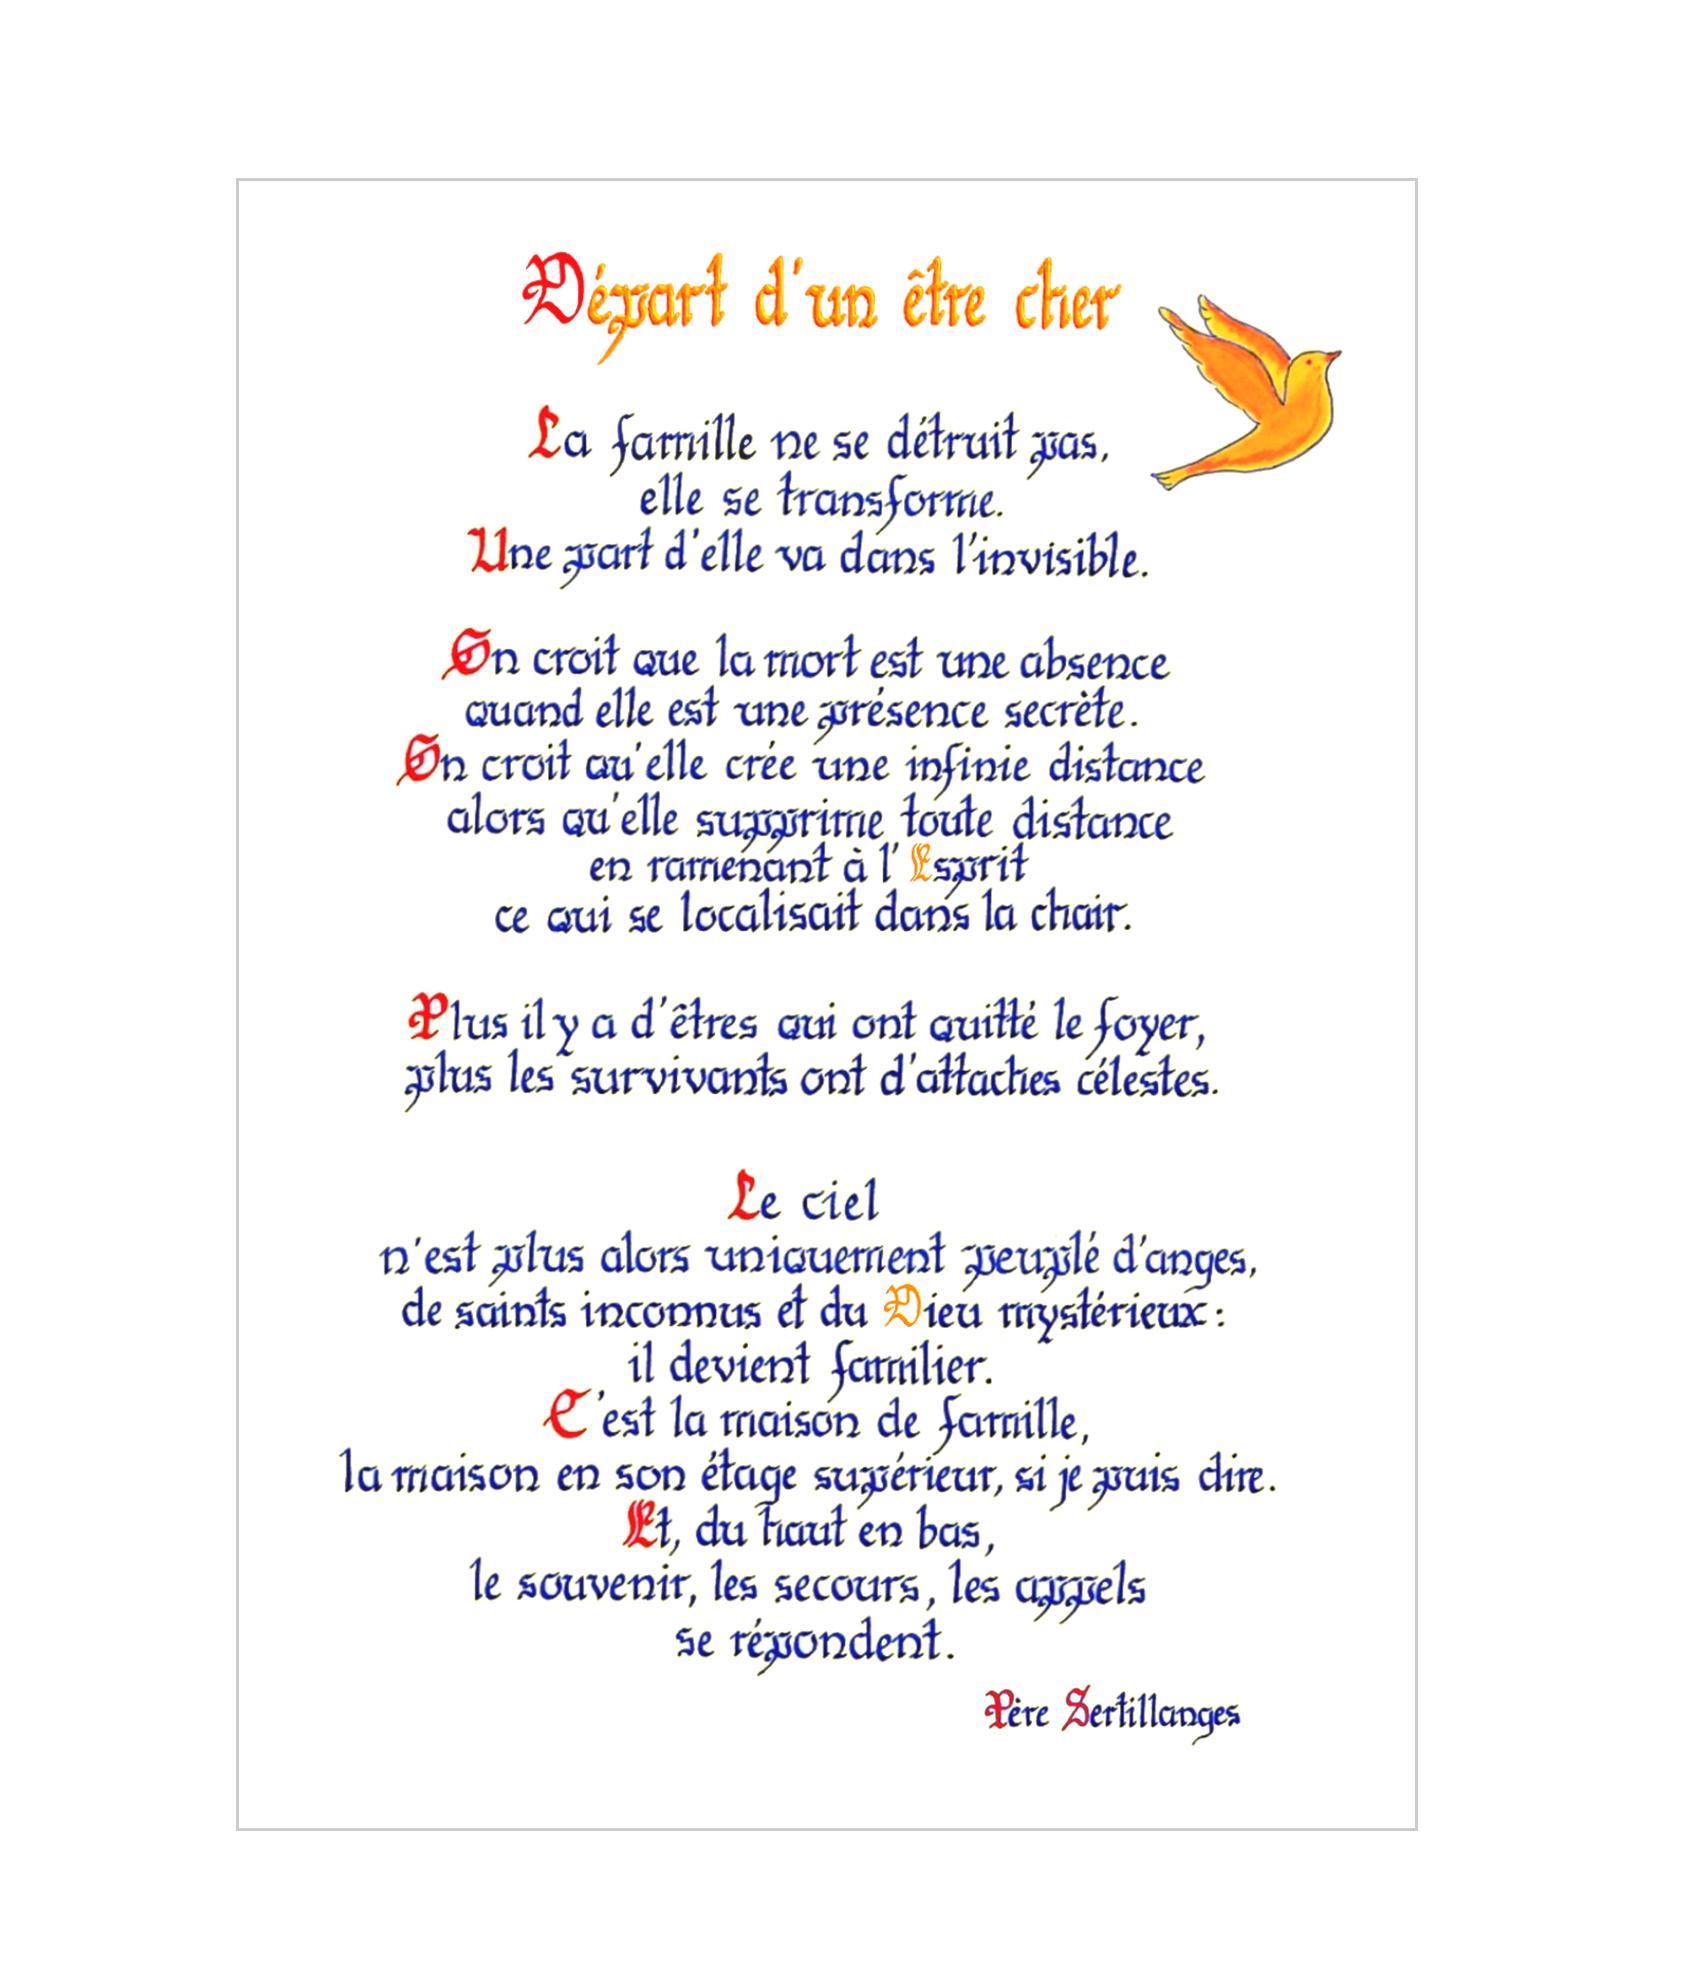 Départ d'un être cher
La famille ne se détruit pas,
elle se transforme.
Une part d'elle va dans l'invisible.
On croit que la mort est une absence
quand elle est une présence secrète.
On croit qu'elle crée une infinie distance
alors qu'elle supprime toute distance
en ramenant à l'Esprit
ce qui se localisait dans la chair.
Plus il y a d'êtres qui ont quitté le foyer,
plus les survivants ont d'attaches célestes.
Le ciel
n'est plus alors uniquement peuplé d'anges,
de saints inconnus et du Dieu mystérieux :
il devient familier.
C'est la maison de famille,
la maison en son étage supérieur, si je puis dire.
Et, du haut en bas,
le souvenir, les secours, les appels
se répondent.
Père Sertillanges